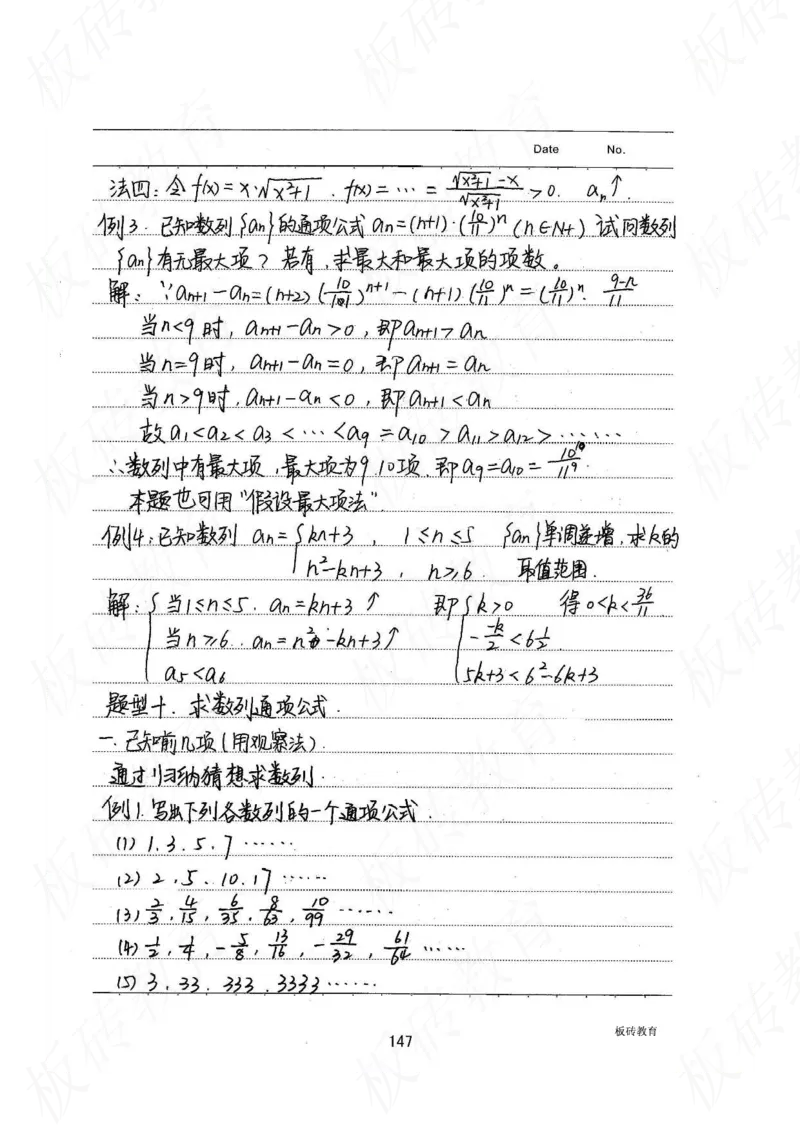 Date No.
法四：令 f(x)=x·√x²+1 . f(x)=⋯=(√x²+1 -x)/√x²+1 >0. aₙ↑.
例3. 已知数列{an}的通项公式 an=(n+1)·(10/11)ⁿ (n∈N+) 试问数列
{an}有无最大项？若有,求最大和最大项的项数。
解：∵an+1-an=(n+2)(10/11)ⁿ⁺¹-(n+1)(10/11)ⁿ=(10/11)ⁿ·(9-n)/11
当n<9时, an+1-an>0, 即an+1>an
当n=9时, an+1-an=0, 即an+1=an
当n>9时, an+1-an<0, 即an+1<an
故a1<a2<a3<⋯<a9=a10>a11>a12>⋯⋯
∴数列中有最大项,最大项为9.10项.即a9=a10=10¹⁰/11⁹.
本题也可用“假设最大项法”.
例4：已知数列 an={kn+3 , 1≤n≤5 {an}单调递增,求k的
n²-kn+3 , n≥6. 取值范围.
解：{当1≤n≤5. an=kn+3↑ 即{k>0 得0<k<36/11.
当n≥6. an=n²-kn+3↑ -(-k)/2<6½
a5<a6 5k+3<6²-6k+3
题型十. 求数列通项公式.
一.已知前几项(用观察法).
通过归纳猜想求数列.
例1.写出下列各数列的一个通项公式.
(1) 1.3.5.7⋯⋯
(2) 2.5.10.17⋯⋯
(3) 2/3, 4/15, 6/35, 8/63, 10/99⋯⋯
(4) 1/2, 1/4, -5/8, 13/16, -29/32, 61/64⋯⋯
(5) 3.33.333.3333⋯⋯
147
板砖教育